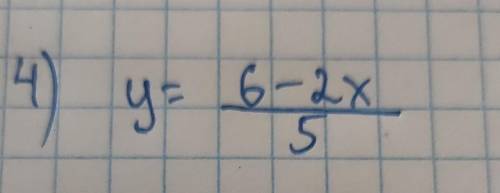 4) y = (6 - 2x)/5